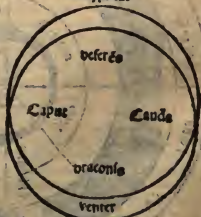 deferēs
Caput Cauda
draconis
venter